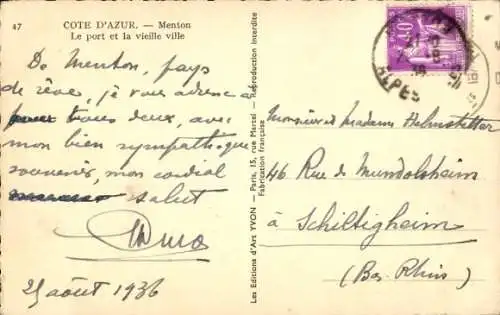 47
COTE D'AZUR. — Menton
Le port et la vieille ville
De Menton, pays
de rêve, je vous adresse à
tous deux, avec
mon bien sympathique
souvenir, mon cordial
salut
25 août 1936
Les Editions d'Art YVON — Paris, 15, rue Martel — Reproduction interdite
Fabrication française
40
ALPES
Monsieur et Madame Helmstetter
46 Rue de Mundolsheim
à Schiltigheim
(Bas-Rhin)